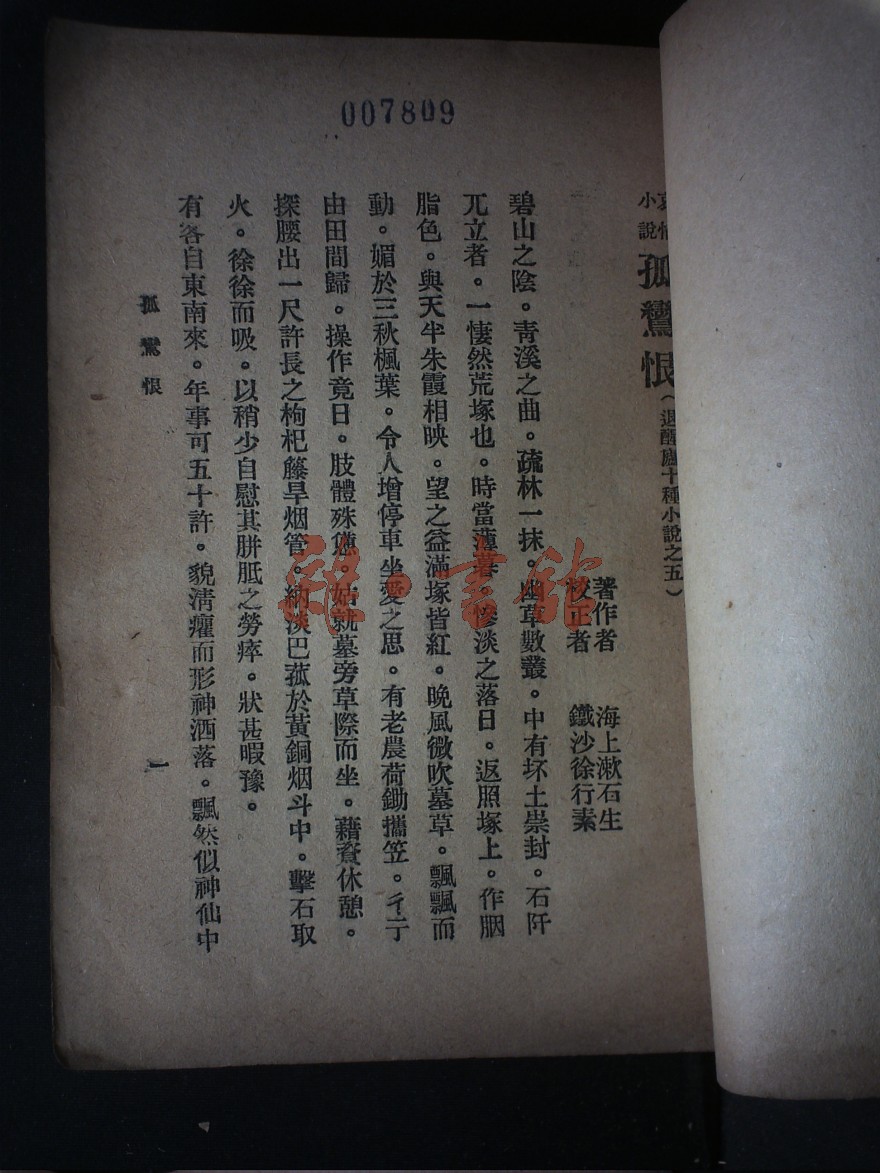 007809
哀情小說 孤鸞恨（退醒廬十種小說之五）
著作者　海上漱石生
校正者　鐵沙徐行素
碧山之陰。靑溪之曲。疏林一抹。幽草數叢。中有坏土崇封。石阡
兀立者。一悽然荒塚也。時當薄暮。慘淡之落日。返照塚上。作胭
脂色。與天半朱霞相映。望之益滿塚皆紅。晚風微吹墓草。飄飄而
動。媚於三秋楓葉。令人增停車坐愛之思。有老農荷鋤攜笠。彳亍
由田間歸。操作竟日。肢體殊憊。姑就墓旁草際而坐。藉資休憩。
探腰出一尺許長之枸杞籐旱烟管。納淡巴菰於黃銅烟斗中。擊石取
火。徐徐而吸。以稍少自慰其胼胝之勞瘁。狀甚暇豫。
有客自東南來。年事可五十許。貌淸癯而形神洒落。飄然似神仙中
孤鸞恨
一
雜書館